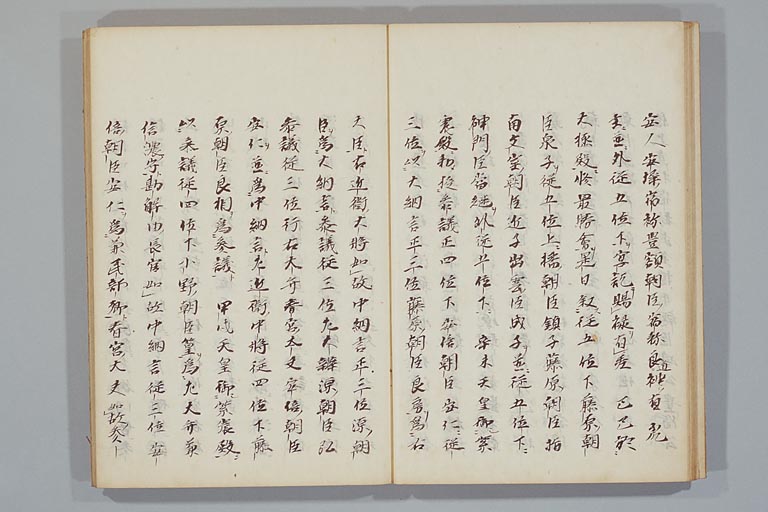 安人安澄常称豊額朝臣常称良
並外従五位下宴訖賜禄有差 己巳於
大極殿修最勝会是日叙従五位下藤原朝
臣泉子従五位上橘朝臣鎮子藤原朝臣
南文室朝臣近子出雲臣成子並従五位下
神門臣 継外従五位下 癸未天皇御紫
宸殿授参議正四位下安倍朝臣安仁従
三位以大納言正三位藤原朝臣良房為右
大臣右近衛大将如故中納言正三位源朝
臣為大納言参議従三位左大弁源朝臣弘
参議従三位行右大弁春宮大夫安倍朝臣
安仁並為中納言左近衛中将従四位下藤
原朝臣良相為参議 甲戌天皇御紫宸殿
以参議従四位下小野朝臣篁為左大弁兼
信濃守勘解由長官如故中納言従三位安
倍朝臣安仁為兼民部卿春宮大夫如故